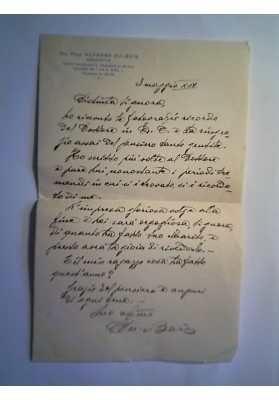 Dott. Prof. ALFONSO DU-BOIS
3 maggio XIV
Distinta Signora,
ho ricevuto la fotografia ricordo
del Dottore in A. O. e La ringra
zio assai del pensiero tanto gentile.
Ho pensato più volte al Dottore
e pare lui, nonostante i periodi tre
mendi in cui si è trovato, si è ricorda
to di me.
L'impresa gloriosa volge alla
fine e Lei sarà orgogliosa, Signora,
di quanto ha fatto Suo Marito, e
presto avrà la gioia di rivederlo.
E il mio ragazzo cosa ha fatto
quest'anno?
Grazie del pensiero e auguri
di ogni bene.
Suo aff.mo
Du-Bois